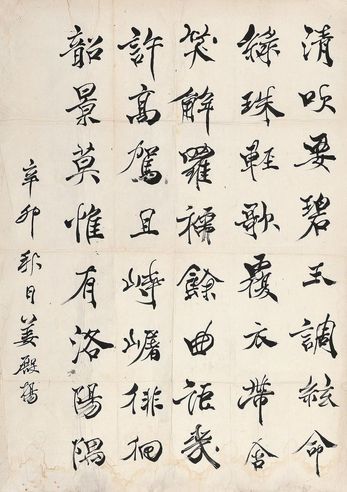 清吹要碧玉調絃命
綠珠輕歌覆衣帶含
笑解羅襦餘曲詎幾
許高駕且徘徊
韶景莫惟有洛陽隅
辛卯秋日姜殿揚